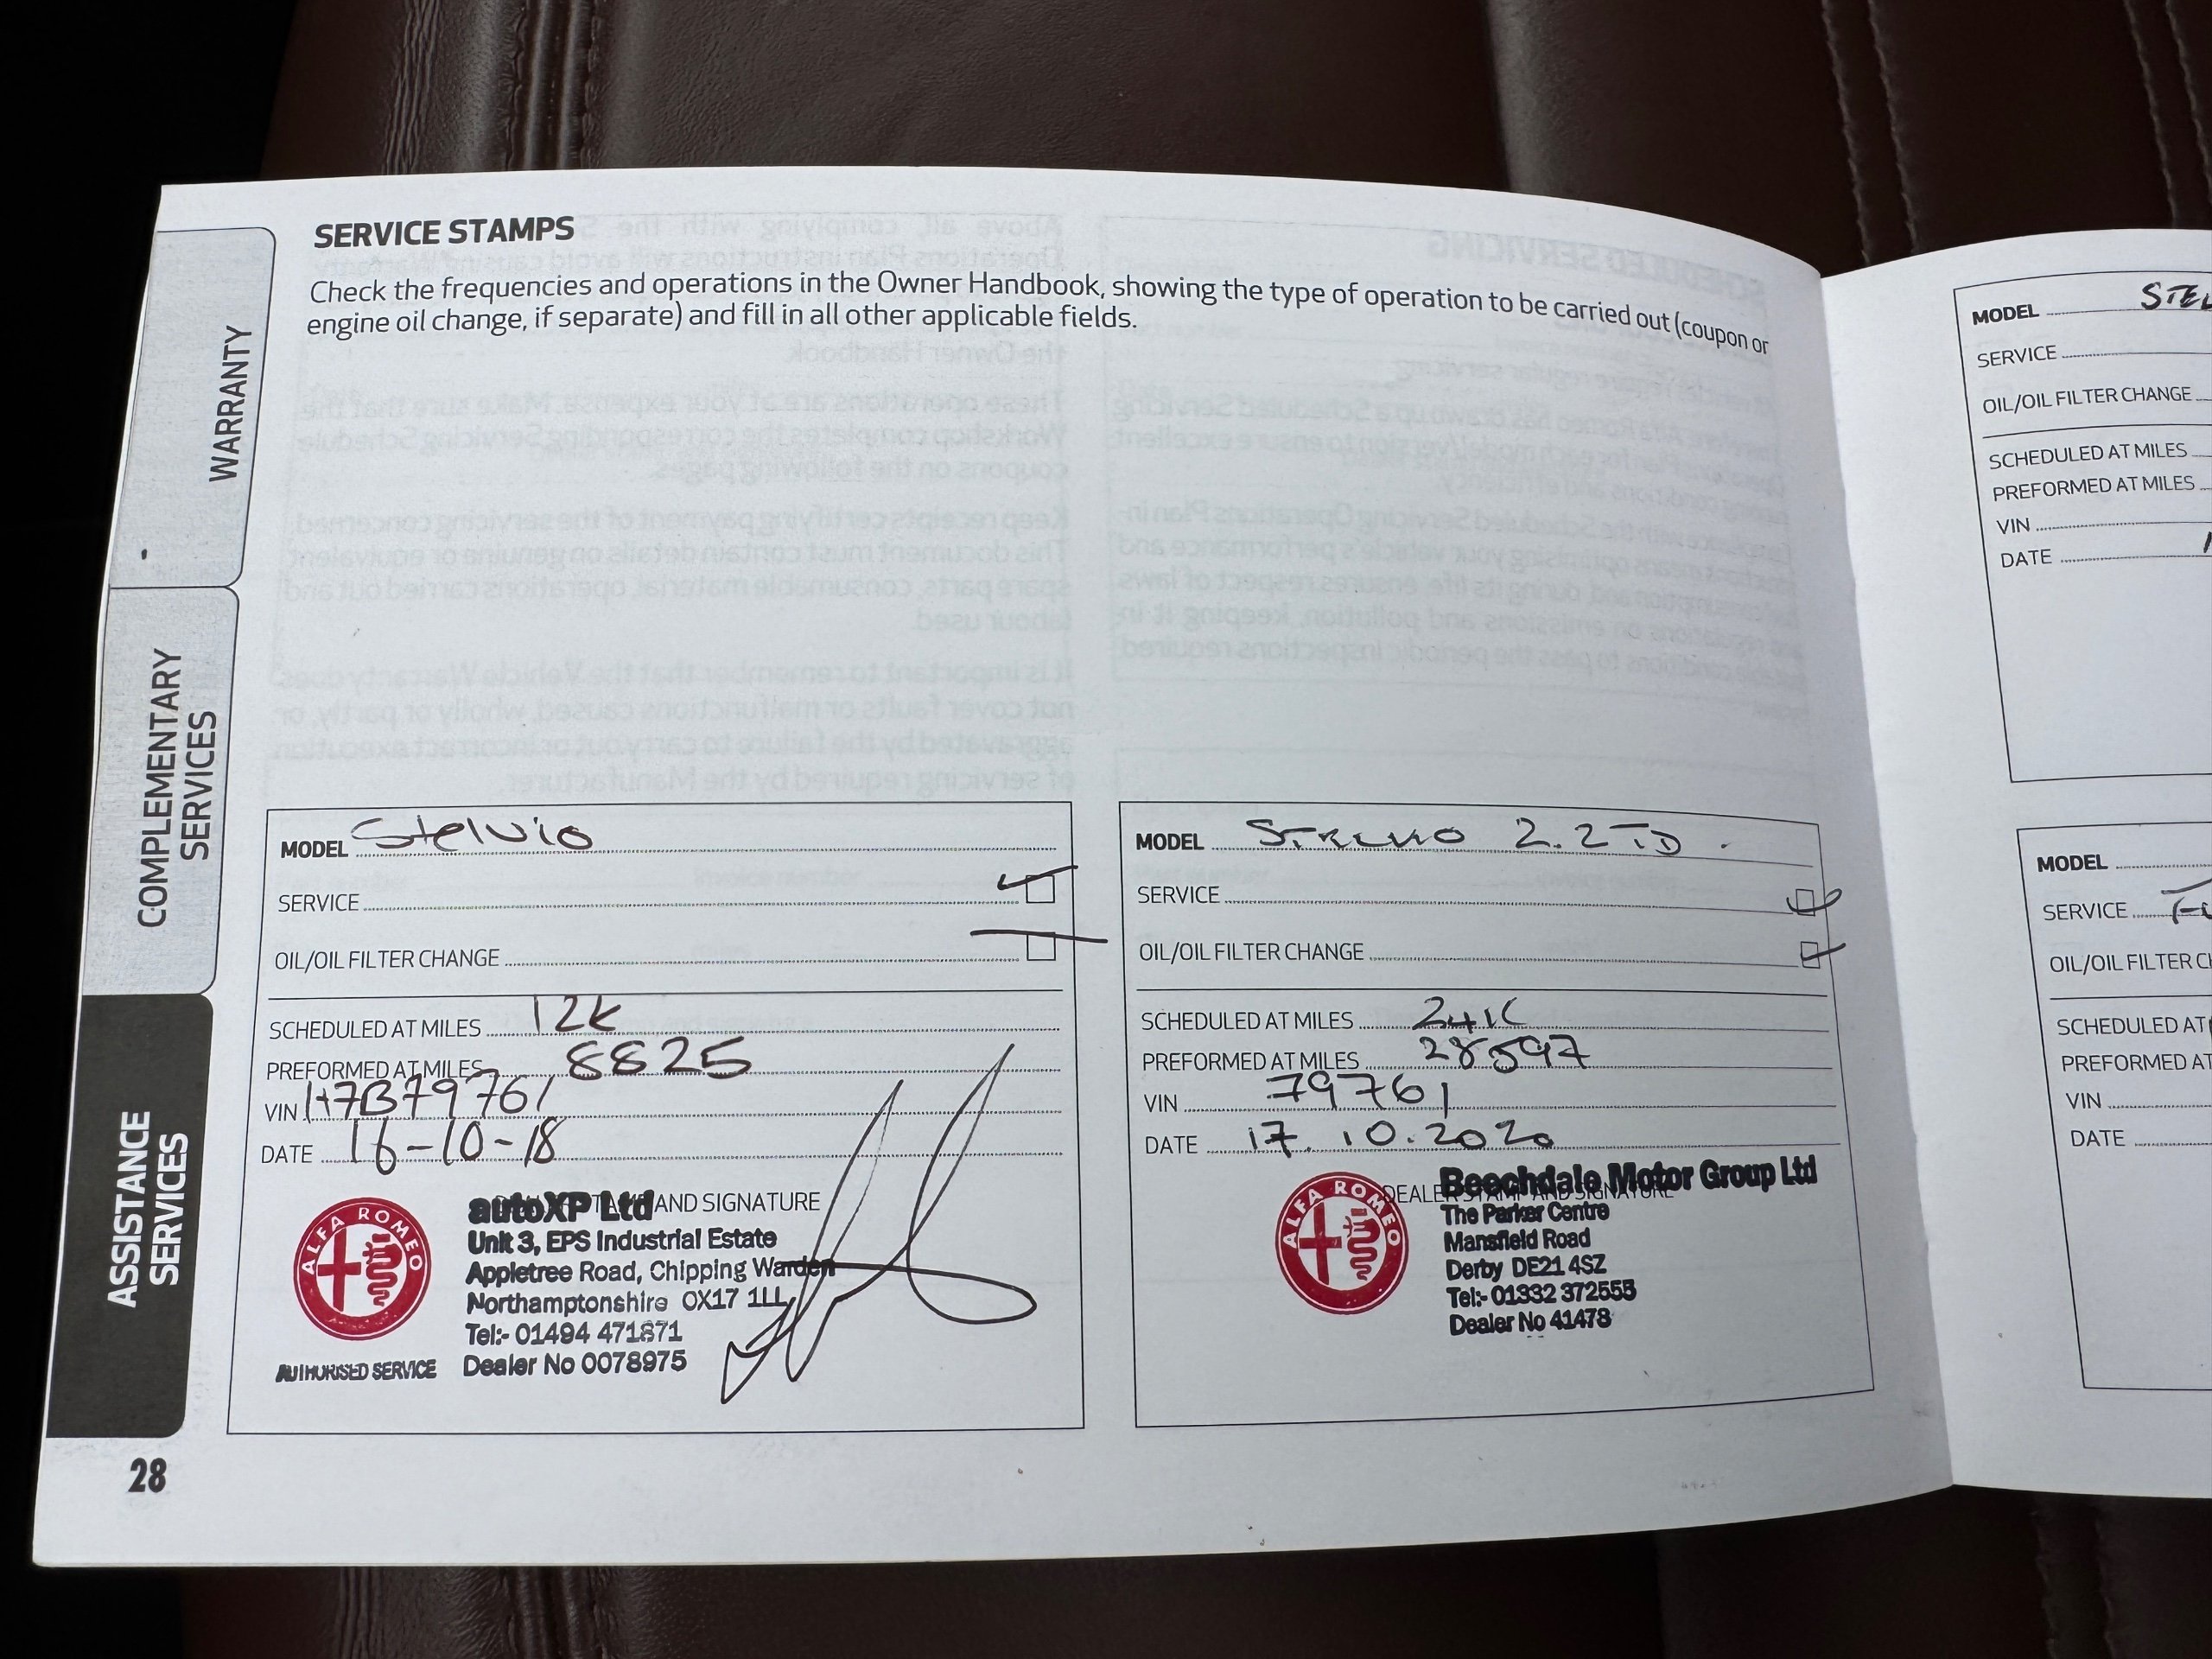 SERVICE STAMPS
Check the frequencies and operations in the Owner Handbook, showing the type of operation to be carried out (coupon or
engine oil change, if separate) and fill in all other applicable fields.
WARRANTY
COMPLEMENTARY
SERVICES
ASSISTANCE
SERVICES
MODEL Stelvio
SERVICE
OIL/OIL FILTER CHANGE
SCHEDULED AT MILES 12k
PREFORMED AT MILES 8825
VIN H7B79761
DATE 16-10-18
AND SIGNATURE
ALFA ROMEO
AUTHORISED SERVICE
autoXP Ltd
Unit 3, EPS Industrial Estate
Appletree Road, Chipping Warden
Northamptonshire OX17 1LL
Tel:- 01494 471871
Dealer No 0078975
MODEL STELVIO 2.2 TD.
SERVICE
OIL/OIL FILTER CHANGE
SCHEDULED AT MILES 24K
PREFORMED AT MILES 28597
VIN 79761
DATE 17.10.2020
DEALER STAMP AND SIGNATURE
ALFA ROMEO
Beechdale Motor Group Ltd
The Parker Centre
Mansfield Road
Derby DE21 4SZ
Tel:- 01332 372555
Dealer No 41478
28
MODEL STEL
SERVICE
OIL/OIL FILTER CHANGE
SCHEDULED AT MILES
PREFORMED AT MILES
VIN
DATE
MODEL
SERVICE
OIL/OIL FILTER CH
SCHEDULED AT
PREFORMED AT
VIN
DATE